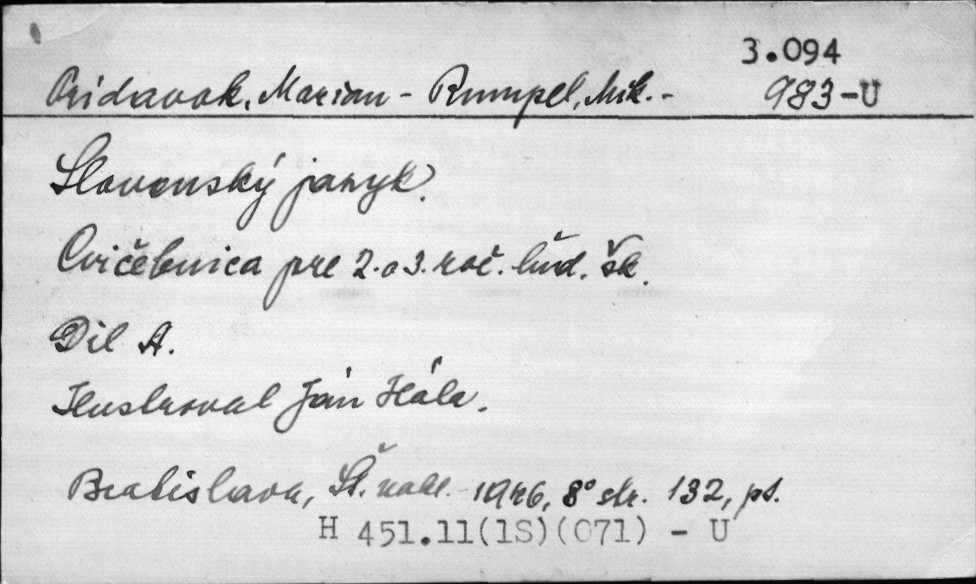 3.094
Pridavok, Marian - Rumpel, Mik. - 983-U
Slovenský jazyk.
Cvičebnica pre 2. a 3. roč. ľud. šk.
Dil A.
Ilustroval Ján Hála.
Bratislava, Št. nakl. 1946, 8° str. 132, pt.
H 451.11(1S)(071) - U